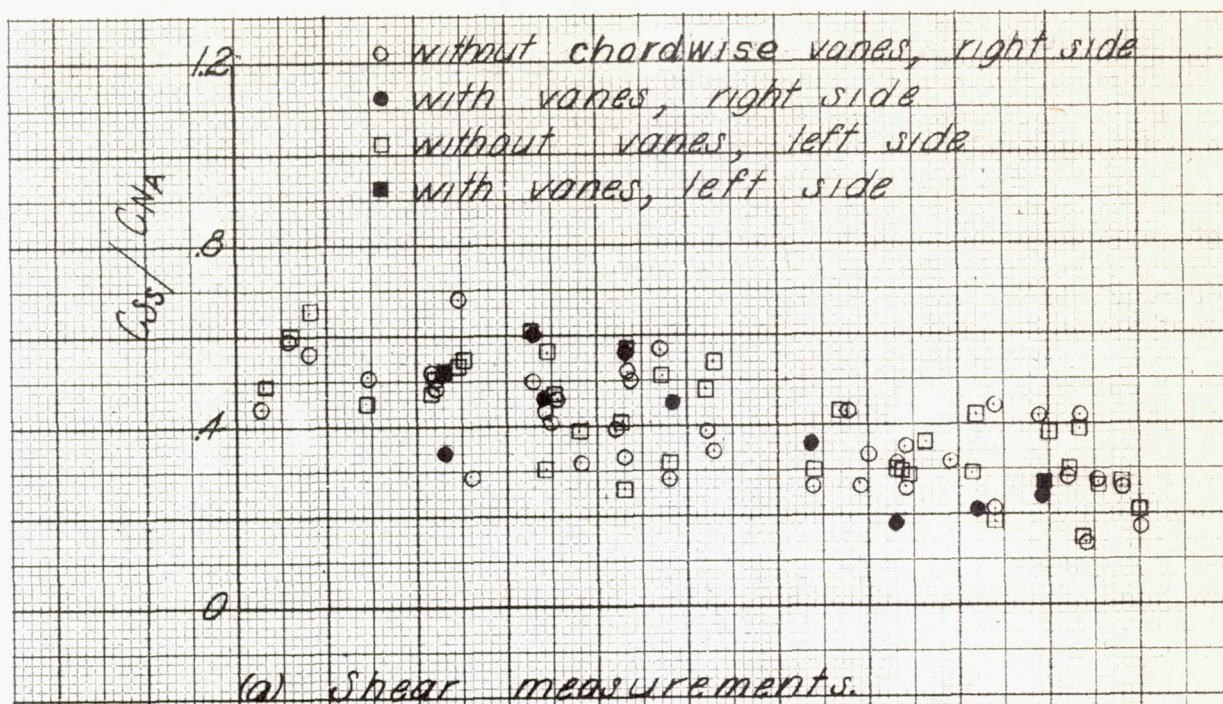 1.2
○ without chordwise vanes, right side
● with vanes, right side
□ without vanes, left side
■ with vanes, left side
C_SS / C_NA
.8
.4
0
(a) Shear measurements.